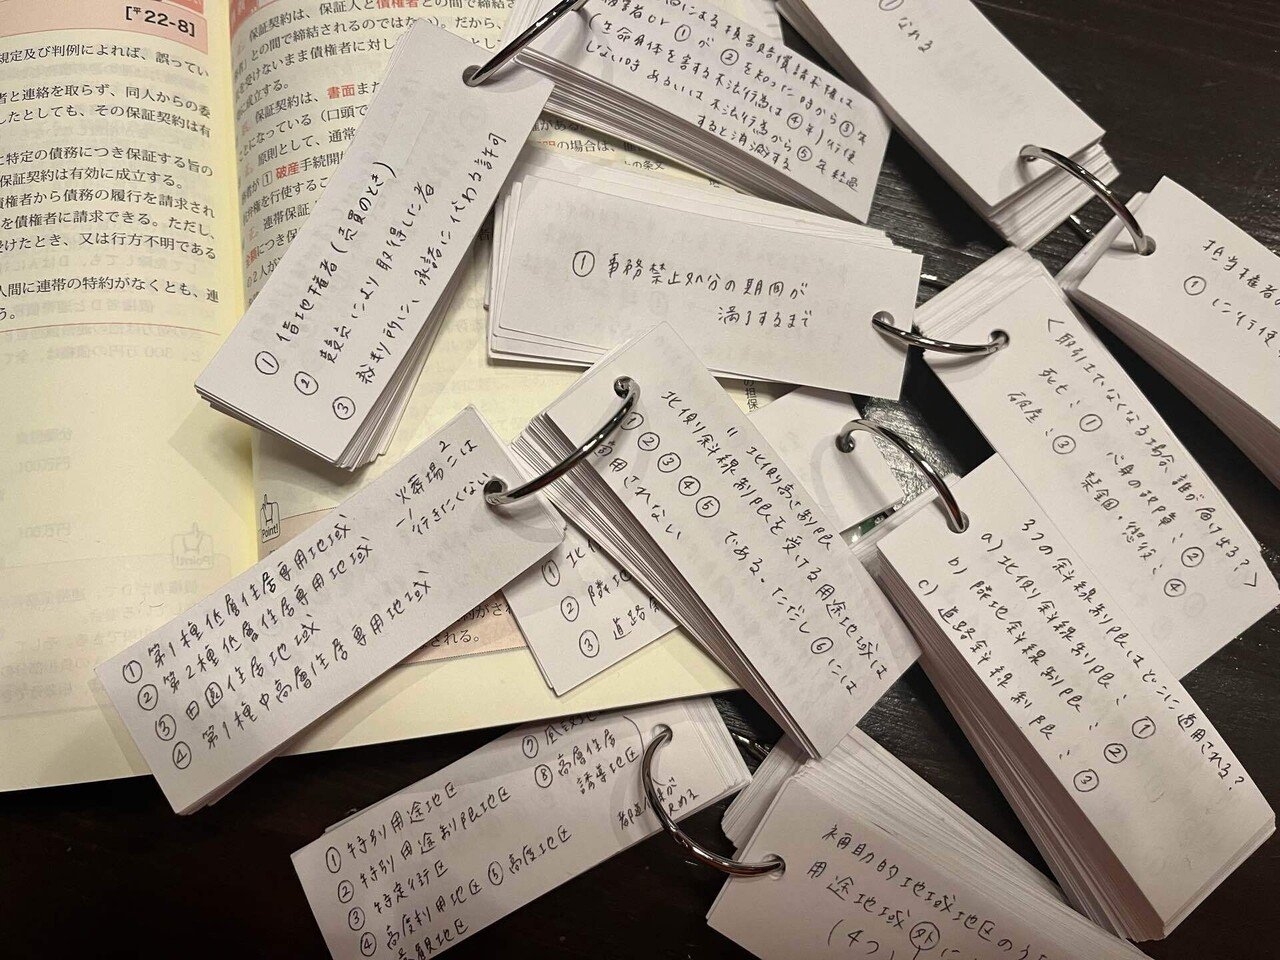 [〒22-8]
規定及び判例によれば、誤ってい
者と連絡を取らず、同人からの委
したとしても、その保証契約は有
に特定の債務につき保証する旨の
保証契約は有効に成立する。
債権者から債務の履行を請求され
を債権者に請求できる。ただし、
受けたとき、又は行方不明である
人間に連帯の特約がなくとも、連
う。
保証契約は、保証人と債権者との間で締結さ
との間で締結されるのではない)。だから、
を受けないまま債権者に対し
に成立する。
保証契約は、書面また
ことになっている(口頭で
原則として、通常
者が①破産手続開
弁権を行使するこ
連帯保証
につき保
の2人が
の場合は、
の条文
Point!
① 借地権者(売買のとき)
② 競売により取得した者
③ 裁判所に、承諾に代わる許可
による損害賠償請求権は
① が ② を知った時から ③ 年
(生命身体を害する不法行為は ④ 年)行使
しない時 あるいは 不法行為から ⑤ 年経過
すると消滅する
① なれる
① 事務禁止処分の期間が
満了するまで
抵当権者の
① に行使
<取引士でなくなる場合、誰が届け出る?>
死亡:① 心身の故障:②
破産:③ 禁錮・懲役:④
① 第1種低層住居専用地域
② 第2種低層住居専用地域
③ 田園住居地域
④ 第1種中高層住居専用地域
火葬場には
行きたくない
北側高さ制限
北側斜線制限を受ける用途地域は
①②③④⑤ である。ただし ⑥ には
適用されない
① 北
② 隣地
③ 道路
3つの斜線制限はどこに適用される?
a) 北側斜線制限:①
b) 隣地斜線制限:②
c) 道路斜線制限:③
① 特別用途地区
② 特別用途制限地区
③ 特定街区
④ 高度利用地区 ⑤ 高度地区
⑧ 高層住居
誘導地区
都道府県が
決める
補助的地域地区のうち
用途地域外に
(4つ)